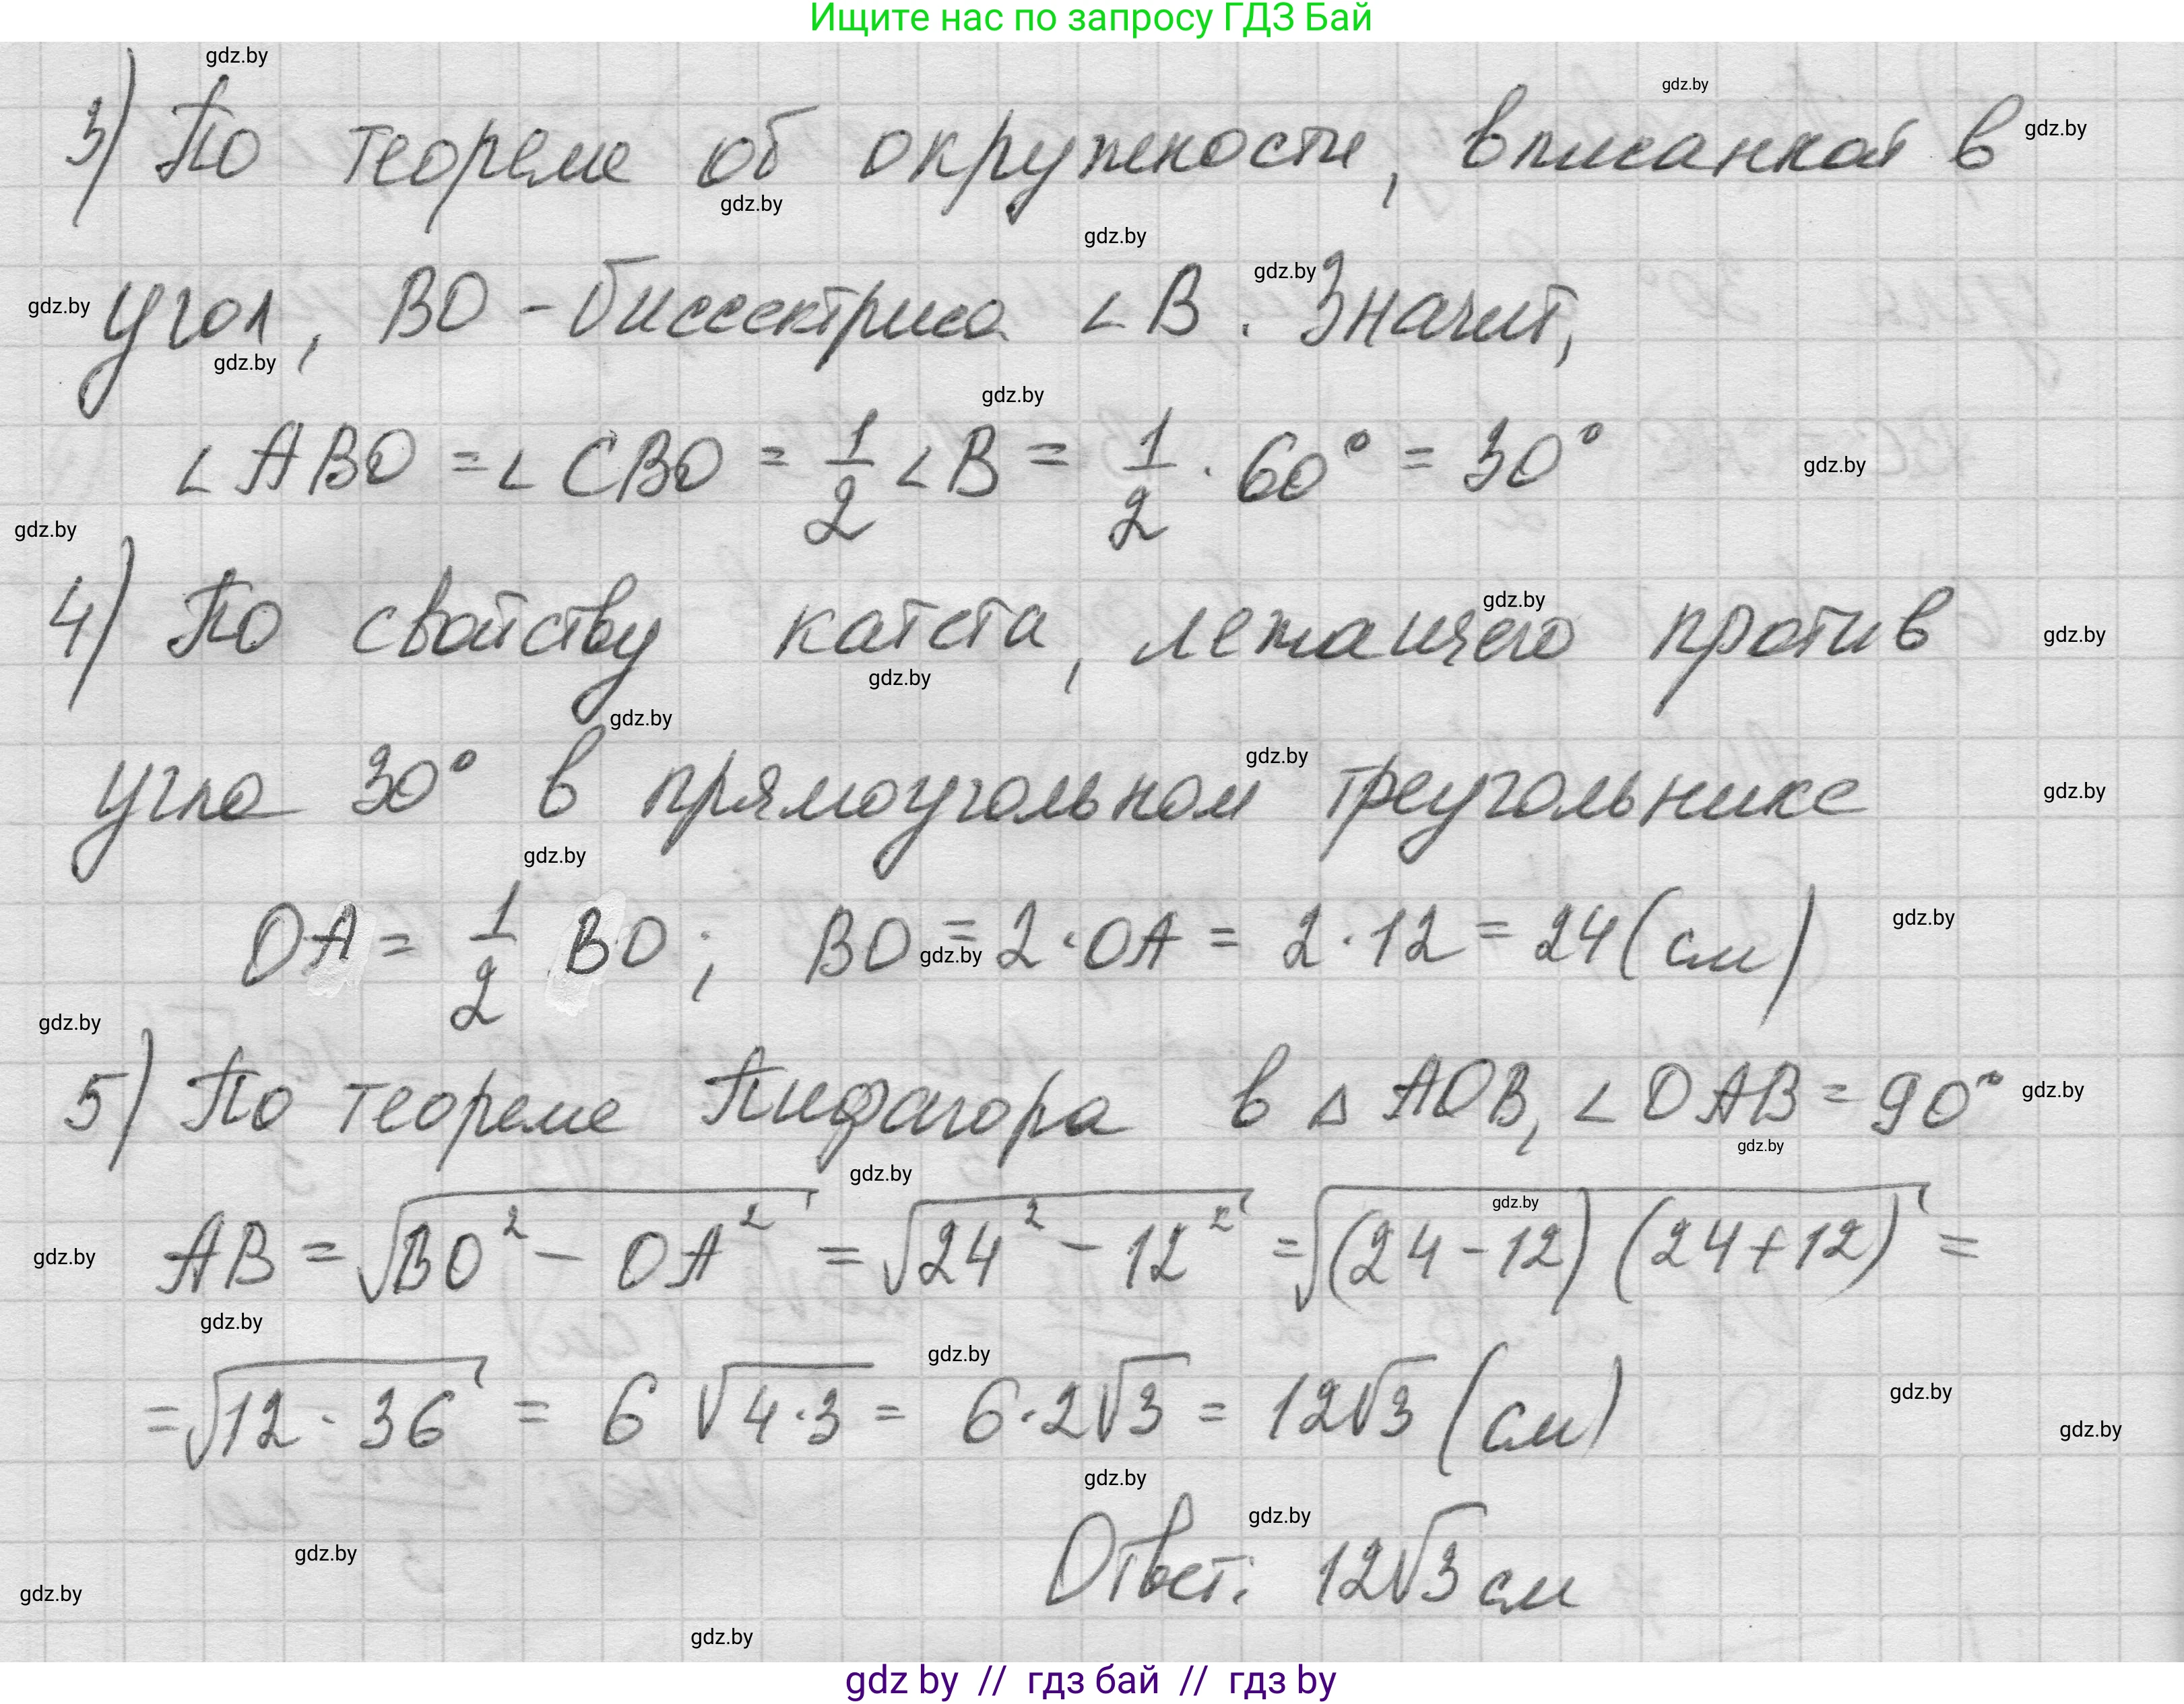 Ищите нас по запросу ГДЗ Бай
gdz.by gdz.by
3) По теореме об окружности, вписанной в gdz.by
gdz.by
gdz.by gdz.by
gdz.by угол, BO - биссектриса ∠B. Значит,
gdz.by
gdz.by
∠ABO = ∠CBO = 1/2 ∠B = 1/2 · 60° = 30° gdz.by
gdz.by
4) По свойству катета, лежащего против gdz.by
gdz.by
gdz.by
gdz.by gdz.by
угла 30° в прямоугольном треугольнике gdz.by
gdz.by
OA = 1/2 BO; BO = 2·OA = 2·12 = 24 (см) gdz.by
gdz.by
gdz.by
5) По теореме Пифагора в △AOB, ∠OAB = 90° gdz.by
gdz.by gdz.by
gdz.by
gdz.by AB = √(BO² - OA²) = √(24² - 12²) = √((24-12)(24+12)) =
gdz.by gdz.by
= √(12·36) = 6 √(4·3) = 6·2√3 = 12√3 (см) gdz.by
gdz.by
gdz.by gdz.by
Ответ: 12√3 см
gdz.by
gdz.by
gdz.by
gdz by // гдз бай // гдз by